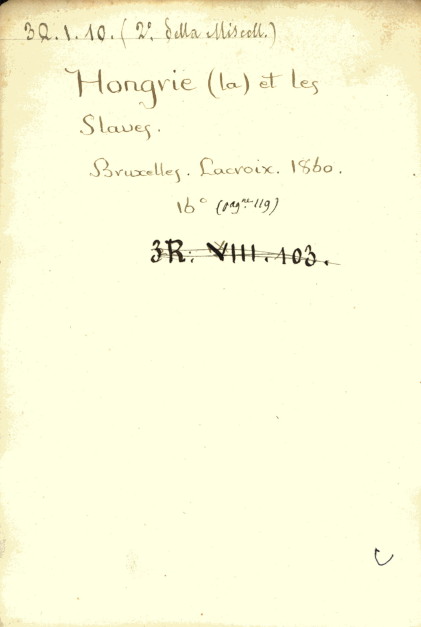 3Q.1.10. (2º della Miscell.)
Hongrie (la) et les
Slaves.
Bruxelles. Lacroix. 1860.
16° (pagne 119)
3R. VIII. 103.